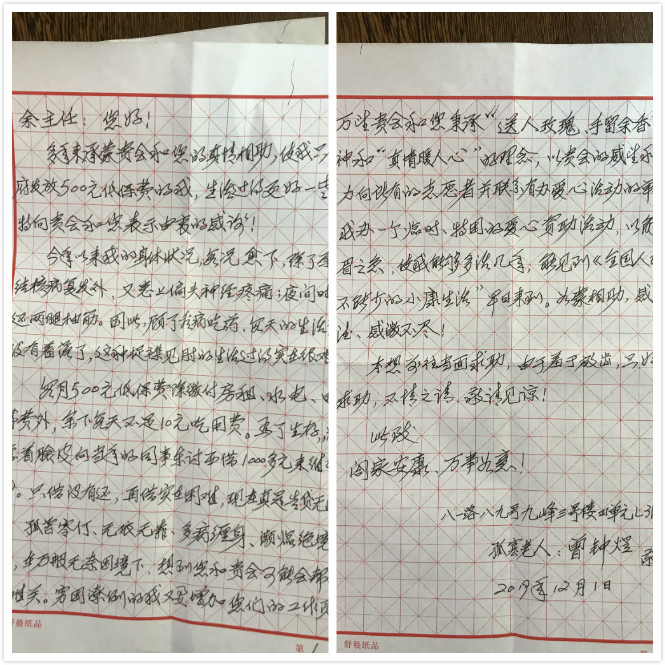 余主任：您好！
多年来承蒙贵会和您的真情相助，使我只
府发放500元低保费的我，生活过的更好一些
特向贵会和您表示由衷的感谢！
今年以来我的身体状况，每况愈下，除了
结核病复发外，又患上偏头神经疼痛；夜间
还两腿抽筋。因此，顾了我病吃药，每天的生活
没有着落了，这种捉襟见肘的生活过的实在很
每月500元低保费除缴付房租、水电、
等费外，余下每天又不足10元吃用费。为了生存，
着脸皮向当年的同事东讨西借1000多元来维
。只借没有还，再借实在困难，现在真是告贷无
孤苦零仃、无依无靠、多病缠身、濒临绝境
在万般无奈困境下，想到您和贵会可能会帮
难关。穷困潦倒的我又要增加您们的工作
舒晨纸品
第 1
万望贵会和您秉承“送人玫瑰、手留余香
神和“真情暖人心”的理念，以贵会的威望和
力向所有的志愿者并联系有办爱心活动的单
我办一个临时、特困的爱心资助活动，以解
眉之急，使我能够多活几年，能见到《全国人
不缺少的小康生活》早日来到。如蒙相助，感
法、感激不尽！
本想前往当面求助，由于羞于启齿，只好
求助，不情之请，敬请见谅！
此致
阖家安康、万事如意！
八一路八九号九峰三号楼四单元
孤寡老人：曹钟煜
2019年12月1日
舒晨纸品
第